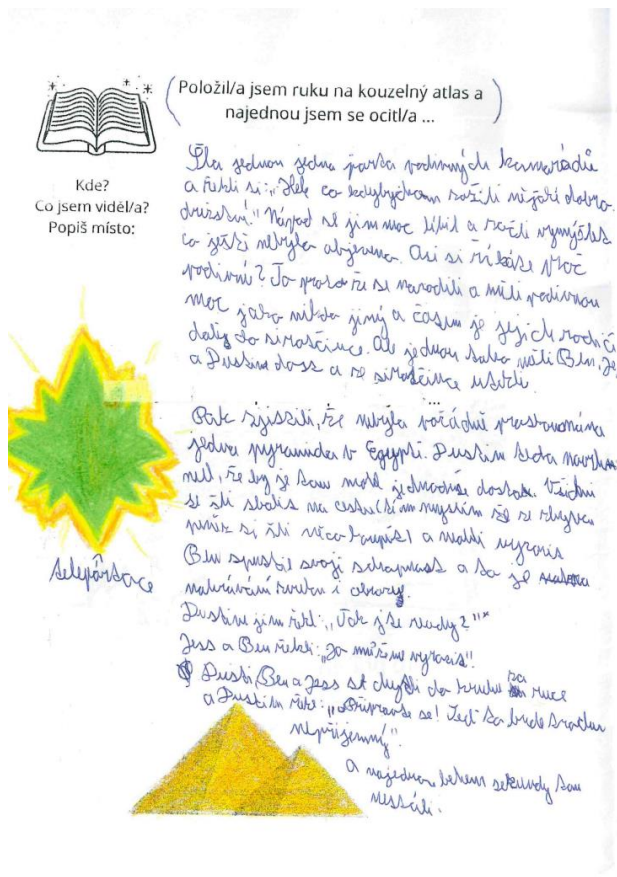 Položil/a jsem ruku na kouzelný atlas a
najednou jsem se ocitl/a ...
Kde?
Co jsem viděl/a?
Popiš místo:
Šla jednou jedna parta podivných kamarádů
a řekli si: „Hele co kdybychom zažili nějaké dobro-
družství." Nápad se jim moc líbil a začli vymýšlet
co ještě nebylo objeveno. Asi si říkáte Proč
podivní? To protože se narodili a měli podivnou
moc jako nikdo jiný a časem je jejich rodiči
dali do sirotčince. Ale jednou toho měli Ben, Je
a Dustin dost a ze sirotčince utekli.
Pak zjistili, že nebyla pořádně prozkoumána
jedna pyramida v Egyptě. Dustin teda navrhnu
nul, že by je tam mohl jednoduše dostat. Všichni
se šli sbalit na cestu tím myslím že se zbytku
peněz si šli něco koupit a mohli vyrazit
Ben spustil svoji schopnost a to je
nahrávání zvuku i obrazu.
Dustin jim řekl: „Tak jste ready?"
Jess a Ben řekli: „Jo můžeme vyrazit".
Dusti, Ben a Jess se chytli do kruhu za ruce
a Dustin řekl: „Připravte se! Teď to bude trochu
nepříjemný".
a najednou během sekundy tam
nestáli.
teleportace